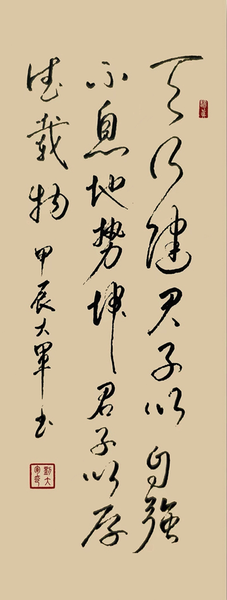 天行健君子以自强
不息地势坤君子以厚
德载物甲辰大军书